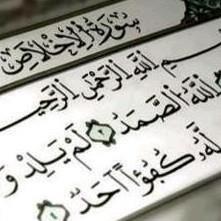 سُورَةُ الْإِخْلَاصِ
سْمِ اللَّهِ الرَّحْمَٰنِ الرَّحِيمِ
اللَّهُ الصَّمَدُ ۝ لَمْ يَلِدْ وَ
لَّهُ كُفُوًا أَحَدٌ